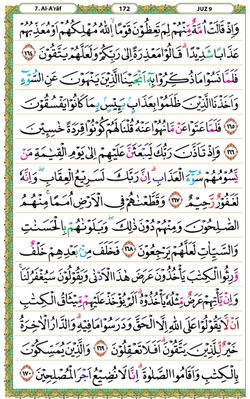 7. Al-A'rāf 172 JUZ 9
وَاِذْ قَالَتْ اُمَّةٌ مِّنْهُمْ لِمَ تَعِظُوْنَ قَوْمًاۙ اللّٰهُ مُهْلِكُهُمْ اَوْ مُعَذِّبُهُمْ
عَذَابًا شَدِيْدًاؕ قَالُوْا مَعْذِرَةً اِلٰى رَبِّكُمْ وَلَعَلَّهُمْ يَتَّقُوْنَ ١٦٤
فَلَمَّا نَسُوْا مَا ذُكِّرُوْا بِهٖٓ اَنْجَيْنَا الَّذِيْنَ يَنْهَوْنَ عَنِ السُّوْٓءِ
وَاَخَذْنَا الَّذِيْنَ ظَلَمُوْا بِعَذَابٍۭ بَـِٔيْسٍۭ بِمَا كَانُوْا يَفْسُقُوْنَ
١٦٥ فَلَمَّا عَتَوْا عَنْ مَّا نُهُوْا عَنْهُ قُلْنَا لَهُمْ كُوْنُوْا قِرَدَةً خٰسِـِٕيْنَ
١٦٦ وَاِذْ تَاَذَّنَ رَبُّكَ لَيَبْعَثَنَّ عَلَيْهِمْ اِلٰى يَوْمِ الْقِيٰمَةِ مَنْ
يَّسُوْمُهُمْ سُوْٓءَ الْعَذَابِؕ اِنَّ رَبَّكَ لَسَرِيْعُ الْعِقَابِۖ وَاِنَّهٗ
لَغَفُوْرٌ رَّحِيْمٌ ١٦٧ وَقَطَّعْنٰهُمْ فِى الْاَرْضِ اُمَمًاۚ مِنْهُمُ
الصّٰلِحُوْنَ وَمِنْهُمْ دُوْنَ ذٰلِكَۖ وَبَلَوْنٰهُمْ بِالْحَسَنٰتِ
وَالسَّيِّاٰتِ لَعَلَّهُمْ يَرْجِعُوْنَ ١٦٨ فَخَلَفَ مِنْۢ بَعْدِهِمْ خَلْفٌ
وَّرِثُوا الْكِتٰبَ يَاْخُذُوْنَ عَرَضَ هٰذَا الْاَدْنٰى وَيَقُوْلُوْنَ سَيُغْفَرُ لَنَاۚ
وَاِنْ يَّاْتِهِمْ عَرَضٌ مِّثْلُهٗ يَاْخُذُوْهُؕ اَلَمْ يُؤْخَذْ عَلَيْهِمْ مِّيْثَاقُ الْكِتٰبِ
اَنْ لَّا يَقُوْلُوْا عَلَى اللّٰهِ اِلَّا الْحَقَّ وَدَرَسُوْا مَا فِيْهِؕ وَالدَّارُ الْاٰخِرَةُ
خَيْرٌ لِّلَّذِيْنَ يَتَّقُوْنَؕ اَفَلَا تَعْقِلُوْنَ ١٦٩ وَالَّذِيْنَ يُمَسِّكُوْنَ
بِالْكِتٰبِ وَاَقَامُوا الصَّلٰوةَؕ اِنَّا لَا نُضِيْعُ اَجْرَ الْمُصْلِحِيْنَ ١٧٠